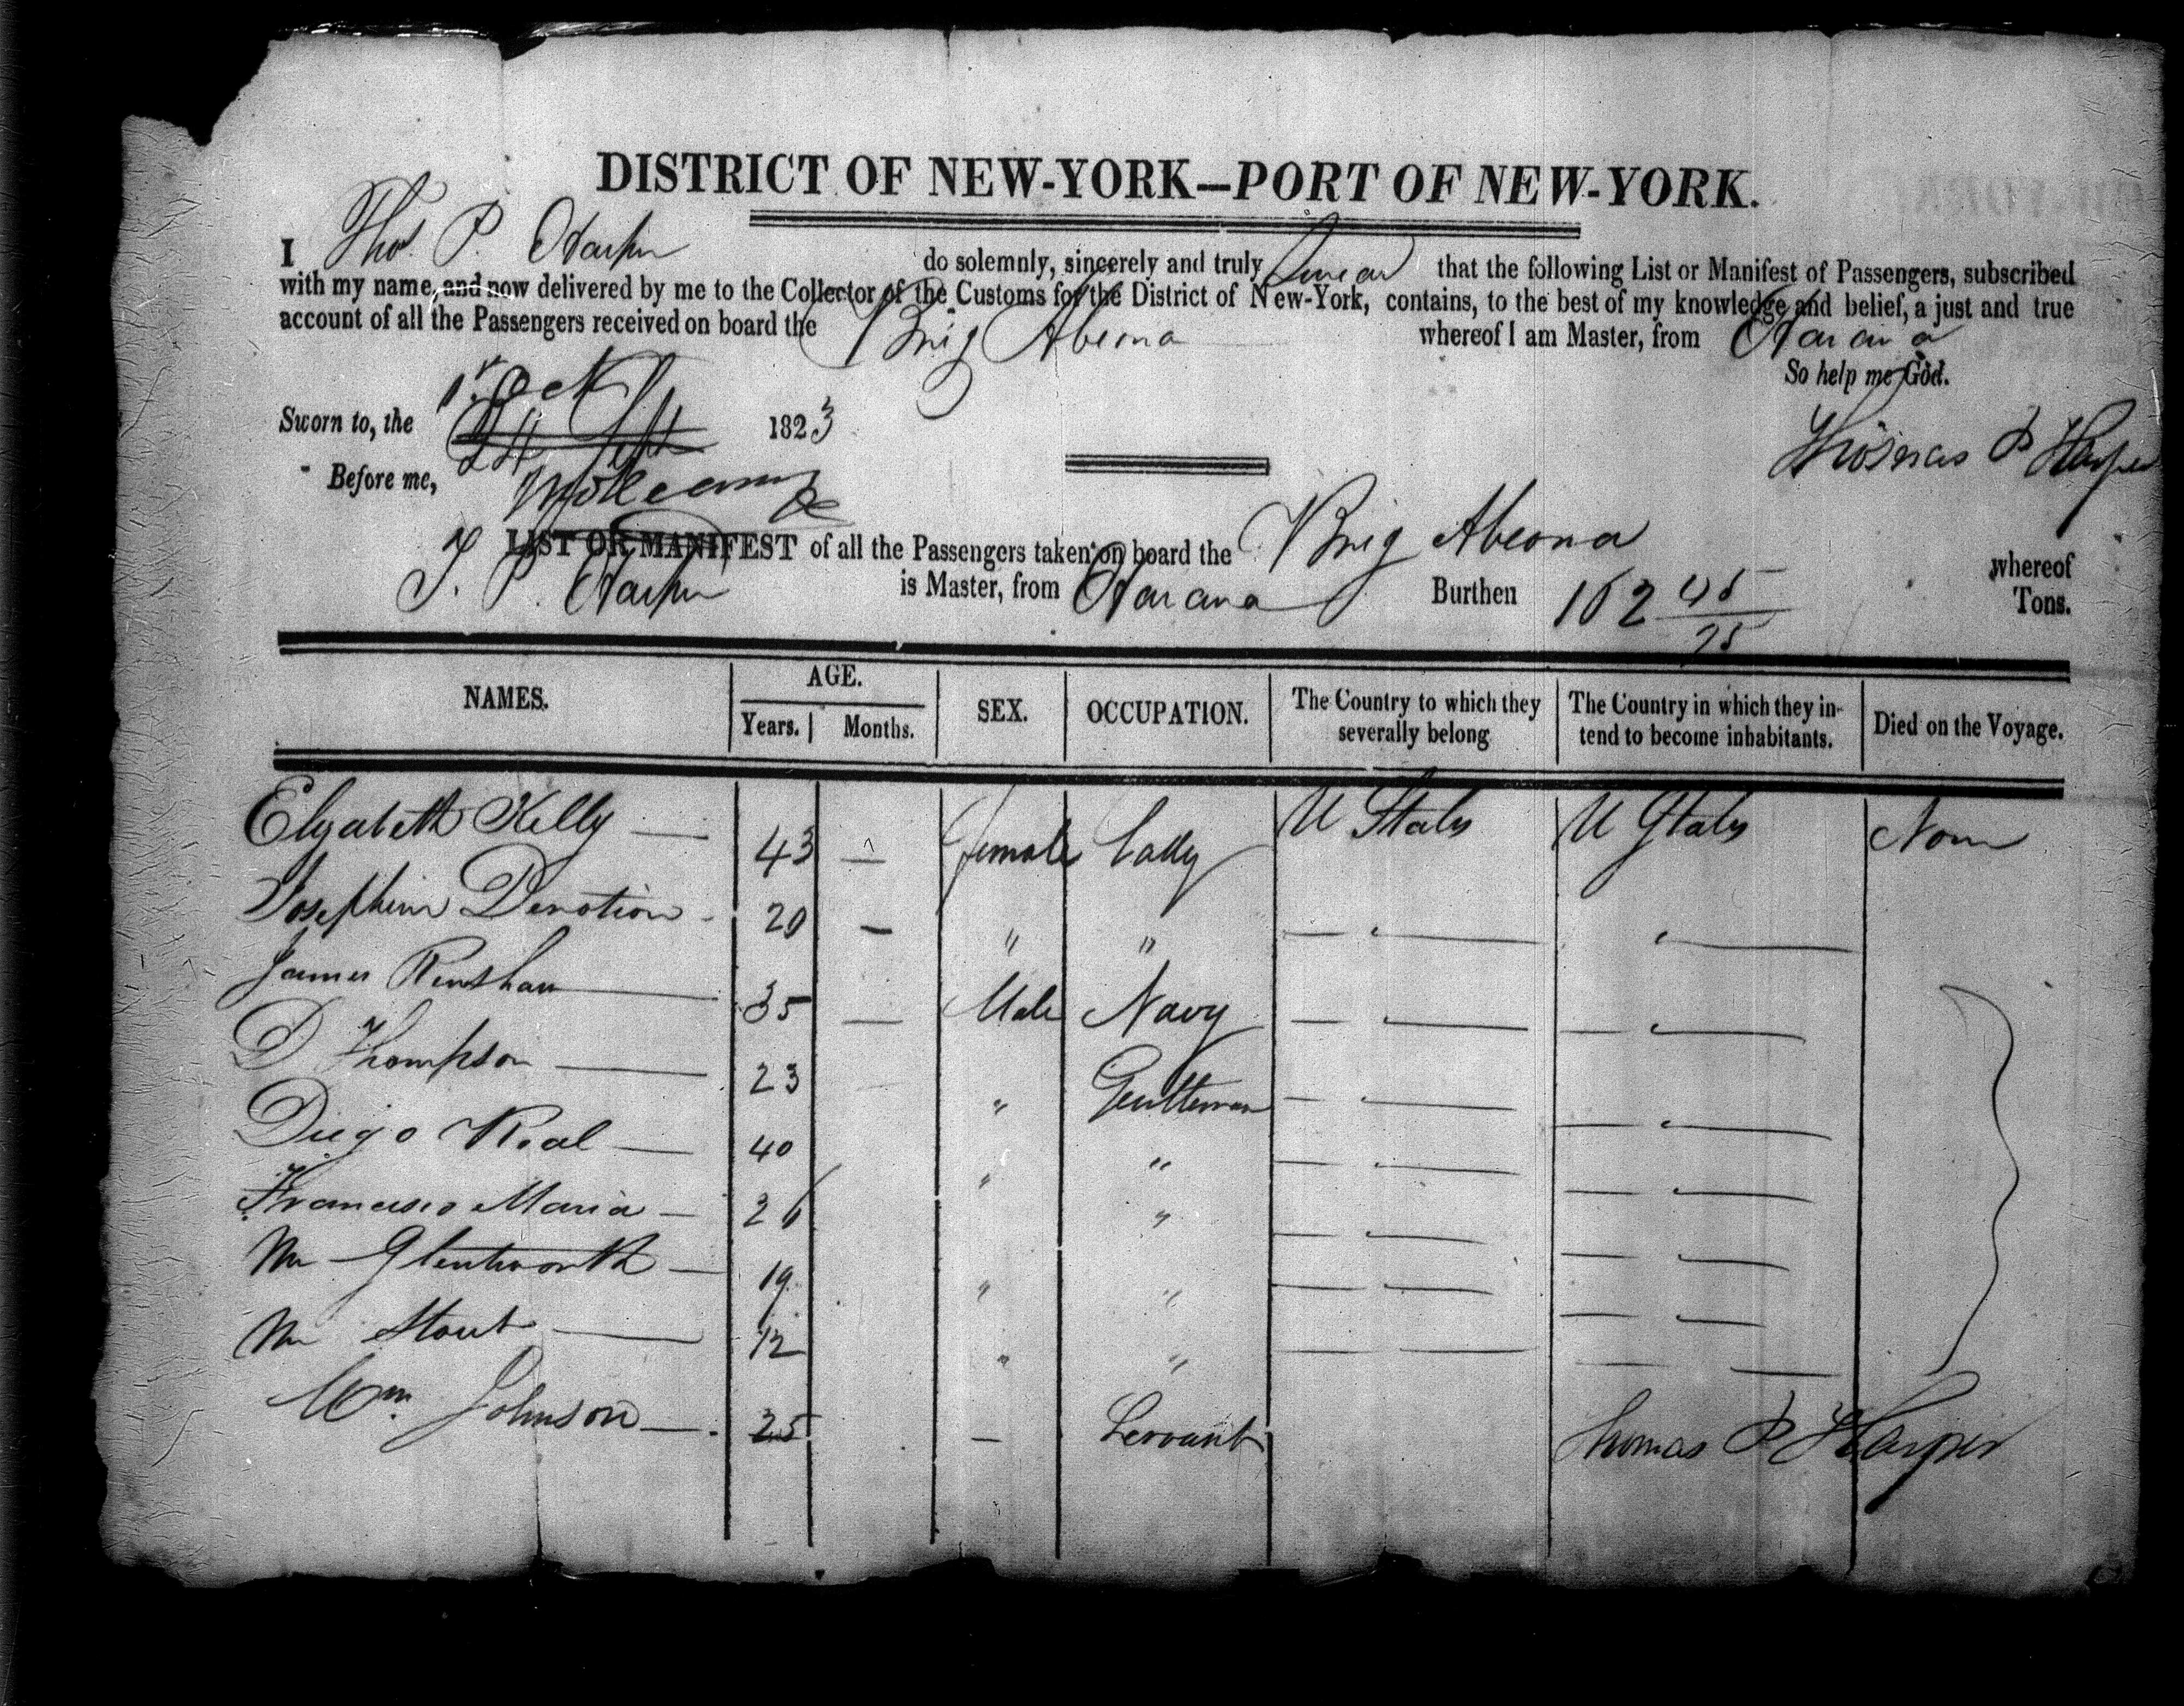 DISTRICT OF NEW-YORK—PORT OF NEW-YORK.
I Thos. P. Harper do solemnly, sincerely and truly Swear that the following List or Manifest of Passengers, subscribed
with my name, and now delivered by me to the Collector of the Customs for the District of New-York, contains, to the best of my knowledge and belief, a just and true
account of all the Passengers received on board the Brig Abeona whereof I am Master, from Havana
So help me God.
1st Oct
Sworn to, the 24 Sept 1823
Thomas P Harper
Before me,
LIST OR MANIFEST of all the Passengers taken on board the Brig Abeona whereof
T. P. Harper is Master, from Havana Burthen 162 45/95 Tons.
NAMES. AGE. SEX. OCCUPATION. The Country to which they severally belong The Country in which they intend to become inhabitants. Died on the Voyage.
Years. Months.
Elizabeth Kelly — 43 — female Lady U States U States None
Josephine Devotion - 20 — " "
James Renshaw — 35 — Male Navy
D Thompson — 23 " Gentleman
Diego Real — 40 " "
Francisco Maria — 26 "
Mr Glentworth — 19 " "
Mr Stout — 12 " "
Wm Johnson — 25 — Servant
Thomas P Harper